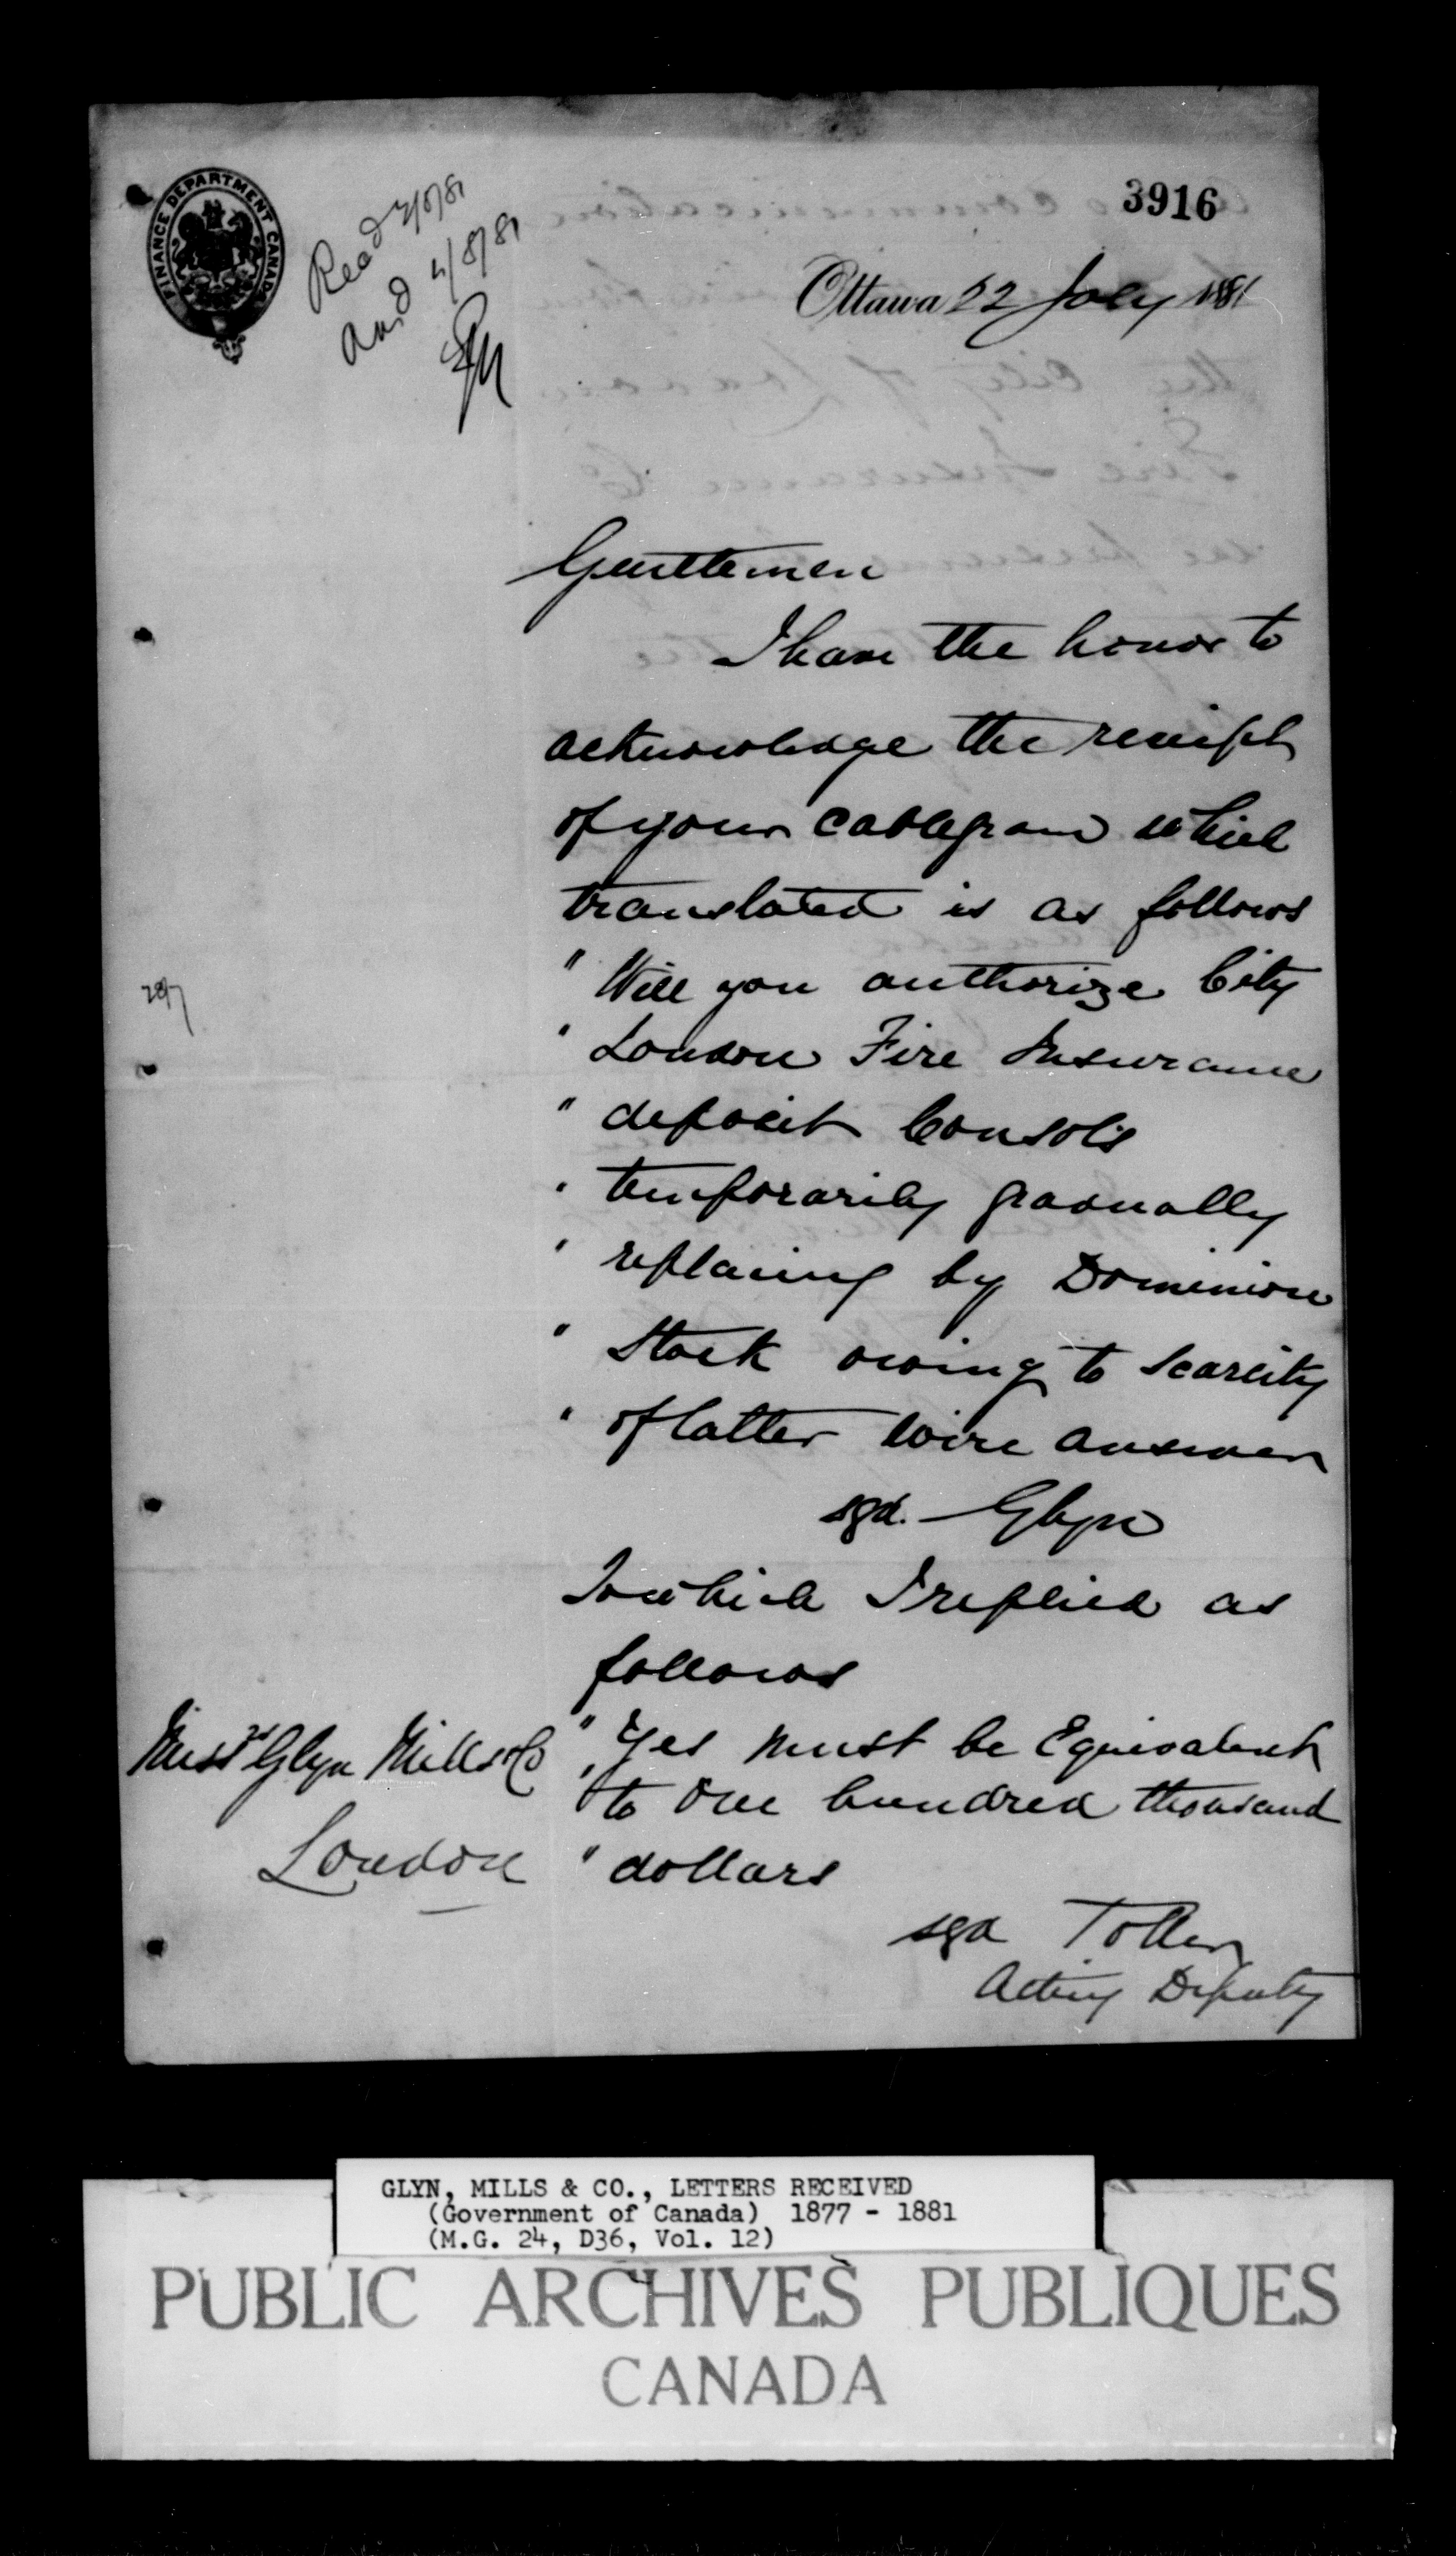 3916
FINANCE DEPARTMENT CANADA
Ottawa 22 July 1881
Gentlemen
I have the honor to
acknowledge the receipt
of your cablegram which
translated is as follows
" Will you authorize City
" London Fire Insurance
" deposit Consols
" temporarily gradually
" replacing by Dominion
" Stock owing to scarcity
" of latter wire answer
sgd. Glyn
To which I replied as
follows
" Yes must be Equivalent
" to one hundred thousand
" dollars
sgd Toller
Acting Deputy
Messrs Glyn Mills & Co
London
GLYN, MILLS & CO., LETTERS RECEIVED
(Government of Canada) 1877 - 1881
(M.G. 24, D36, Vol. 12)
PUBLIC ARCHIVES PUBLIQUES
CANADA